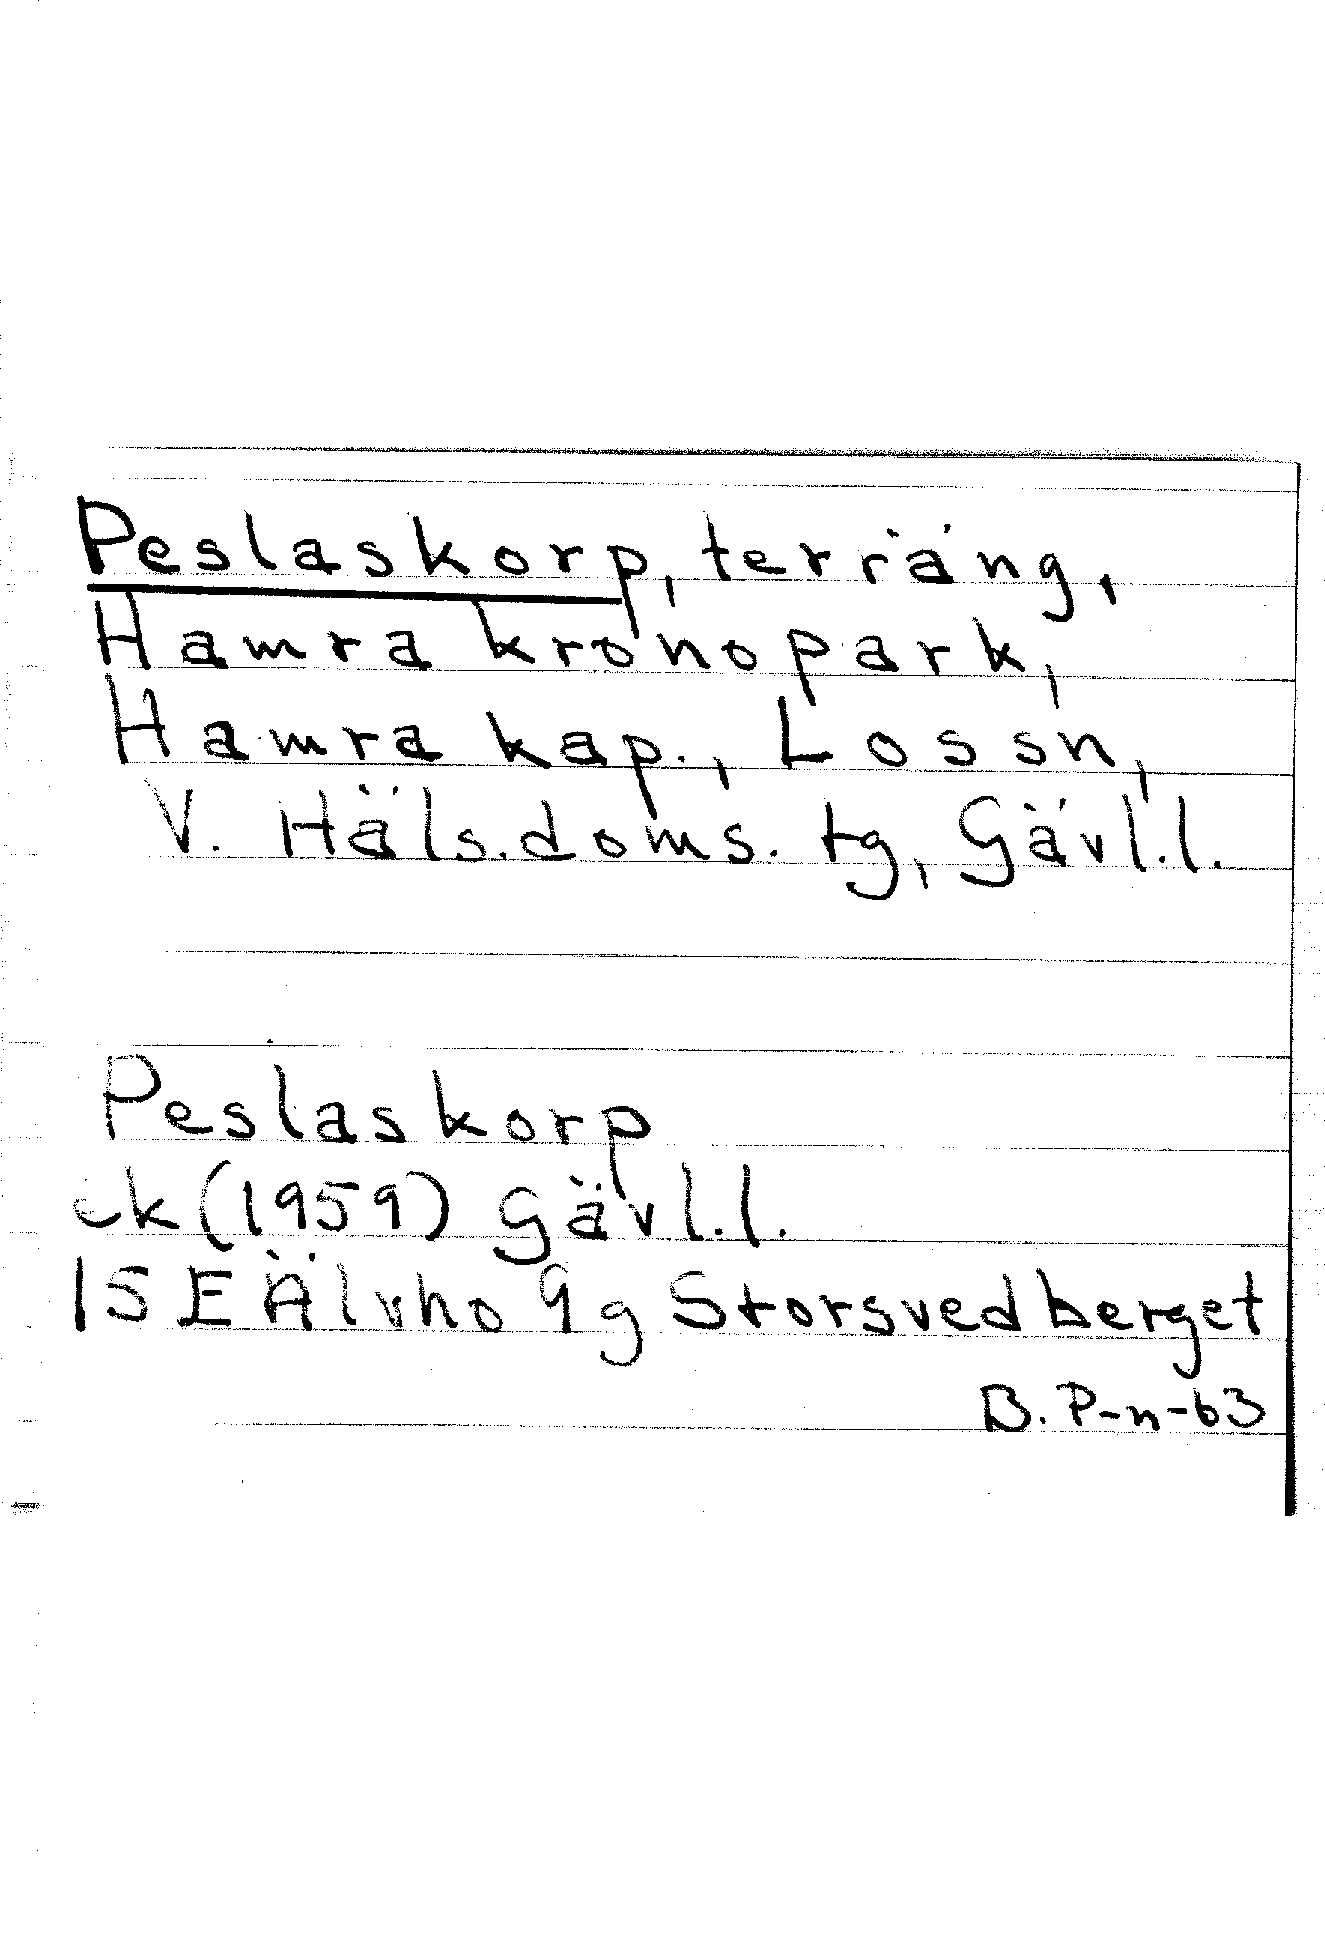 Peslaskorp, terräng,
Hamra kronopark,
Hamra kap., Lossn,
V. Häls.doms. tg, Gävl.l.
Peslaskorp
ek (1959) Gävl.l.
15 E Älvho 9g Storsvedberget
B. P-n-63